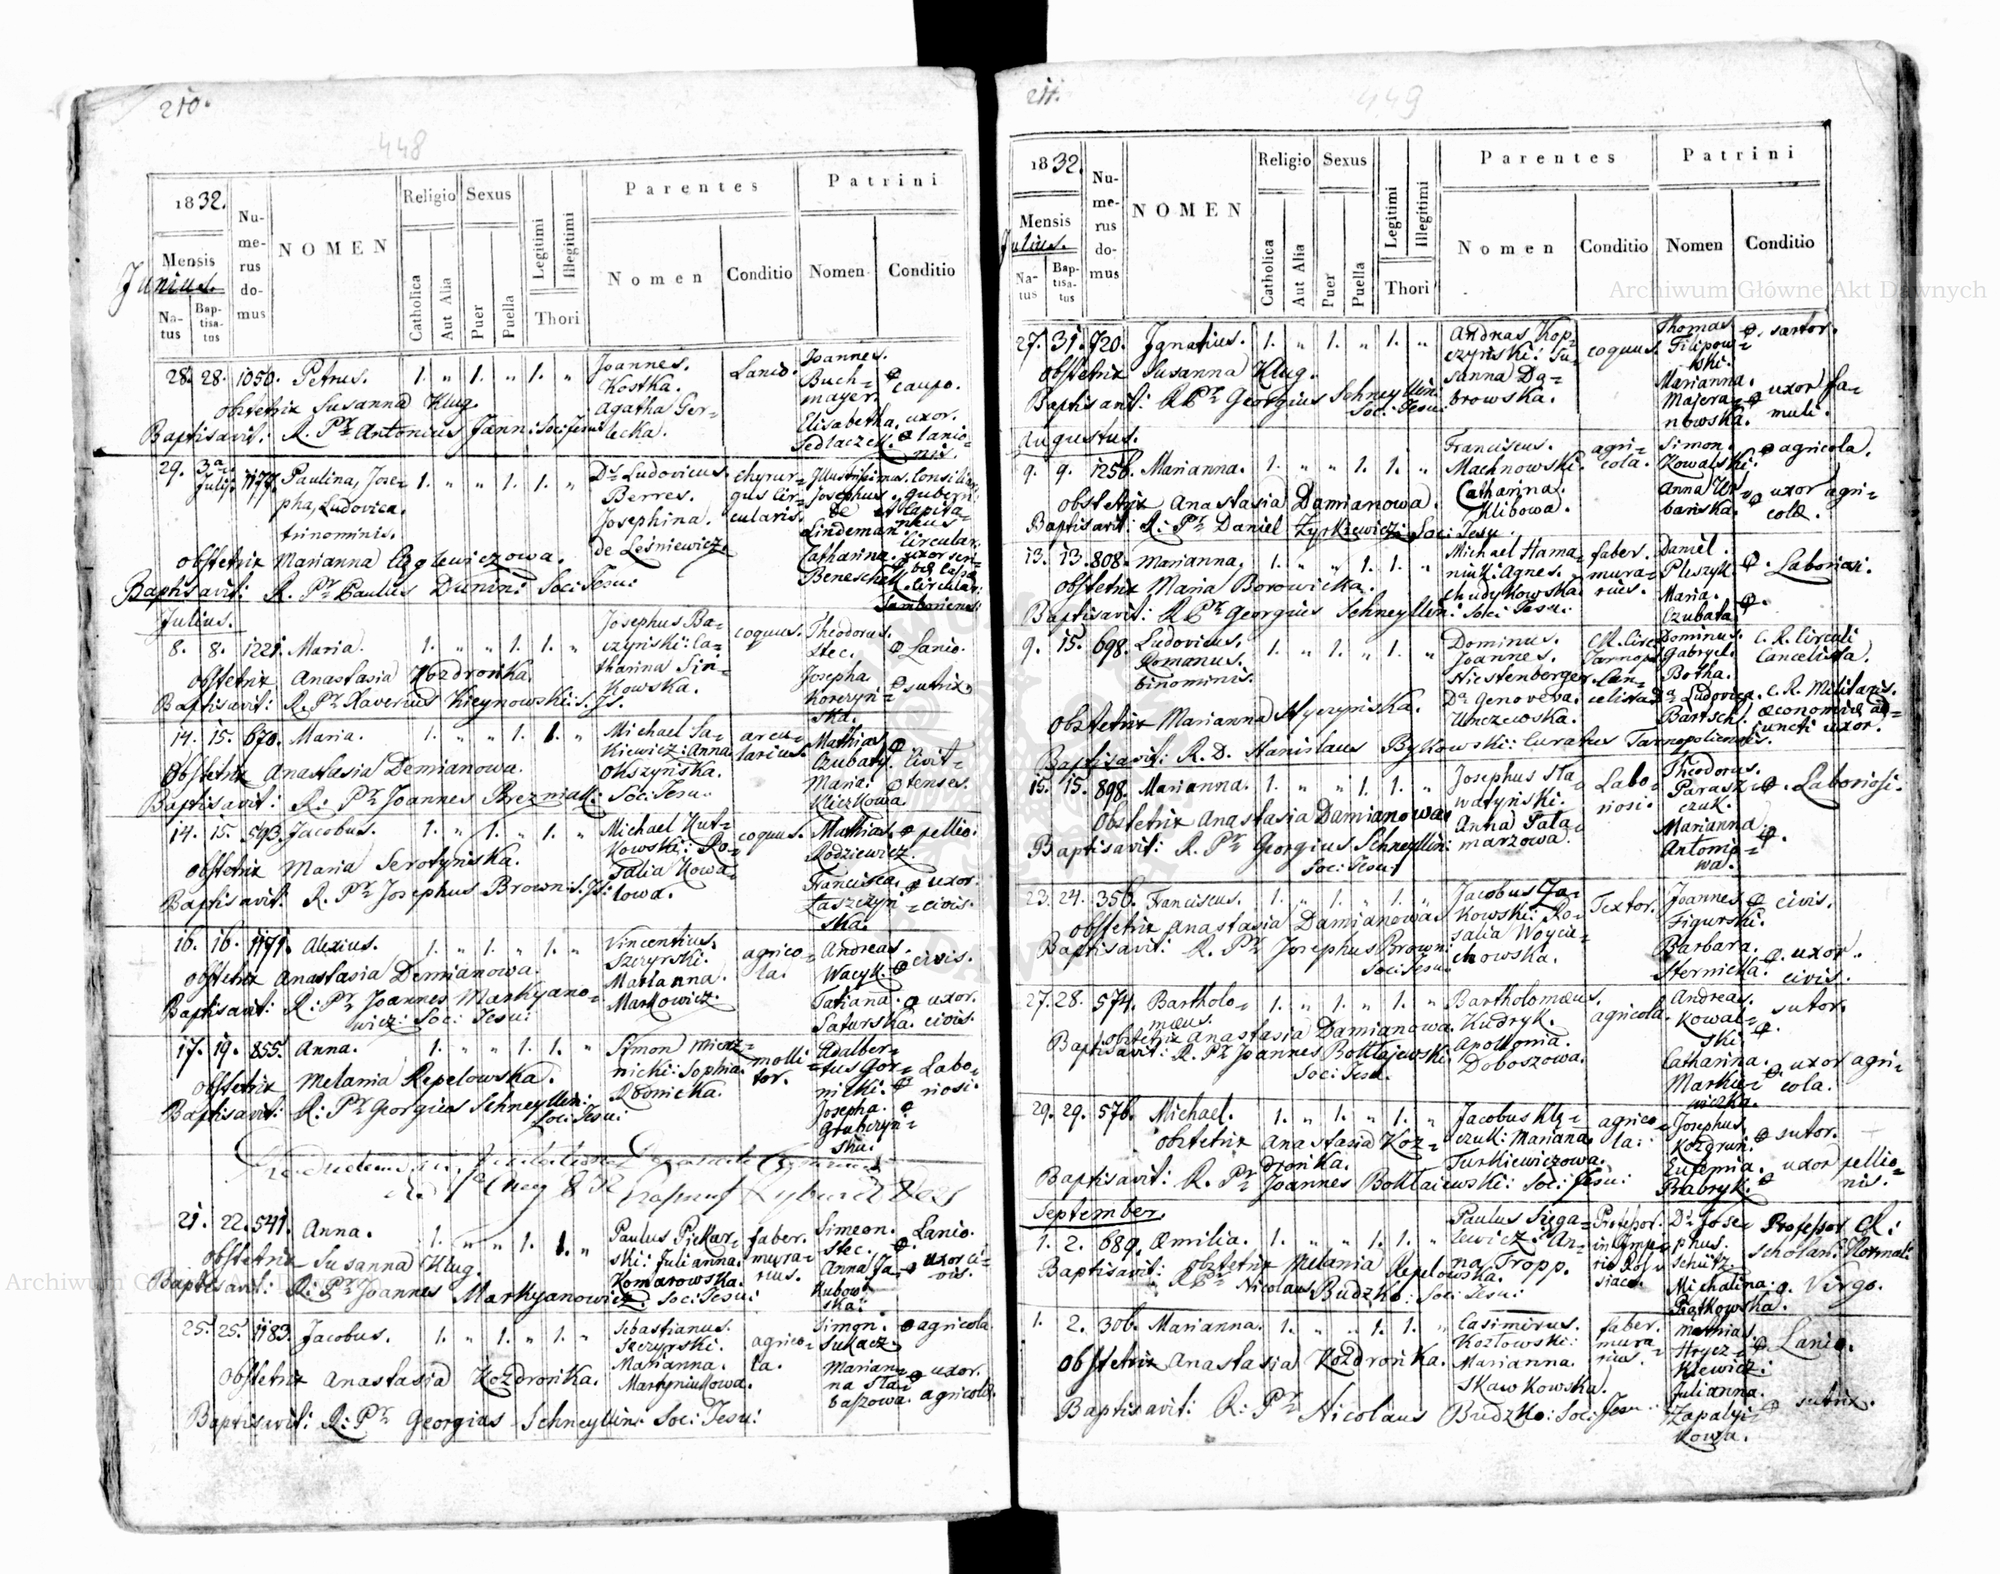 210.
448
1832.
Mensis
Junius.
Natus
Baptisatus
Numerus domus
NOMEN
Religio
Catholica
Aut Alia
Sexus
Puer
Puella
Legitimi
Illegitimi
Thori
Parentes
Nomen
Conditio
Patrini
Nomen
Conditio
28. 28. 1050. Petrus. 1. " 1. " 1. " Joannes. Kostka. Agatha Ger= lecka. Lanio. Joannes. Buch= mayer. caupo. Elisabetha. Sedlaczek. uxor. lanio= nis.
obstetrix Susanna Klug.
Baptisavit: R. Pr Antonius Jann: Soc: Jesu:
29. 3a Julij. 1177. Paulina, Jose= pha, Ludovica. trinominis. 1. " " 1. 1. " Ds Ludovicus. Berres. Josephina. de Leśniewicz. chyrur= gus cir= cularis. Illustrissimus. Josephus de Lindeman. Catharina. Beneschek
obstetrix Marianna
Baptisavit: R. Pr Paulus Dunin: Soc: Jesu:
Julius.
8. 8. 1221. Maria. 1. " " 1. 1. " Josephus Ba= czyński: Ca= tharina Sin= kowska. coquus. Theodorus. Stec. Lanio. Josepha Korczyń= ska. sutrix.
obstetrix Anastasia Kozdrońka.
Baptisavit: R. Pr Xaverius Kieynowski: S. Js.
14. 15. 670. Maria. 1. " " 1. 1. " Michael Sa= kiewicz: Anna Okszyńska. arcu= larius. Mathias Czubaty. Maria. Kliczkowa civit= tenses.
Obstetrix Anastasia Demianowa.
Baptisavit: R: Pr Joannes Brezniak: Soc: Jesu:
14. 15. 593. Jacobus. 1. " 1. " 1. " Michael Kut= kowski: Ro= salia Kowa= lowa. coquus. Mathias. Rodziewicz. pellio. Francisca. Łaszczyń= ska. uxor. civis.
obstetrix Maria Serotyńska.
Baptisavit: R. Pr Josephus Brown: S. Js:
16. 16. 1171. Alexius. 1. " 1. " 1. " Vincentius. Szczyrski. Marianna. Markowicz. agrico= la. Andreas. Wacyk. civis. Tatiana. Saturska. uxor. civis.
obstetrix Anastasia Demianowa.
Baptisavit: R: Pr Joannes Markyano= wicz: Soc: Jesu:
17. 19. 855. Anna. 1. " " 1. 1. " Simon Mierz= nicki: Sophia. Rownicka. molli= tor. Adalber= tus Gor= nicki. Josepha. Grubczyń= ska. Labo= riosi.
obstetrix Melania Repelowska.
Baptisavit: R: Pr Georgius Schneyllin: Soc: Jesu:
21. 22. 541. Anna. 1. " " 1. 1. " Paulus Piekar= ski: Julianna. Komarowska. faber. mura= rius. Simeon. Stec. Lanio. Anna Ja= kubow= ska. uxor ci= vis.
obstetrix Susanna Klug.
Baptisavit: R: Pr Joannes Markyanowicz: Soc: Jesu:
25. 25. 1183. Jacobus. 1. " 1. " 1. " Sebastianus. Szczyrski. Marianna. Martyniukowa. agrico= la. Simon. Sukacz. agricola. Marian= na Sta= baszowa. uxor. agricolæ.
obstetrix Anastasia Kozdrońka.
Baptisavit: R: Pr Georgius Schneyllin: Soc: Jesu:
211.
449
1832.
Mensis
Julius.
Natus
Baptisatus
Numerus domus
NOMEN
Religio
Catholica
Aut Alia
Sexus
Puer
Puella
Legitimi
Illegitimi
Thori
Parentes
Nomen
Conditio
Patrini
Nomen
Conditio
27. 31. 920. Ignatius. 1. " 1. " 1. " Andreas Kop= czyński: Su= sanna Dą= browska. coquus. Thomas Filipow= ski. sartor. Marianna. Majera= nowska. uxor fa= muli.
obstetrix Susanna Klug.
Baptisavit: R Pr Georgius Schneyllin: Soc: Jesu:
Augustus.
9. 9. 1256. Marianna. 1. " " 1. 1. " Franciscus. Machnowski. Catharina. Klibowa. agri= cola. Simon. Kowalski. agricola. Anna Ur= bańska. uxor agri= colæ.
obstetrix Anastasia Damianowa.
Baptisavit: R: Pr Daniel Zyrkiewicz: Soc: Jesu
13. 13. 808. Marianna. 1. " " 1. 1. " Michael Hama= niuk: Agnes. Chudykowska. faber. mura= rius. Daniel. Pliszyk. Laboriosi. Maria. Czubata.
obstetrix Maria Borowicka.
Baptisavit: R Pr Georgius Schneyllin: Soc: Jesu:
9. 15. 698. Ludovicus. Romanus. binominis. 1. " 1. " 1. " Dominus. Joannes. Stiestenberger. Da Genoveva. Unczewska. Dominus. Gabryel. Botha. C. R. Circuli Cancelista. Da Ludovica. Bartsch. C. R. Militaris. œconomiæ ad= juncti uxor.
Obstetrix Marianna Styczyńska.
Baptisavit: R. D. Stanislaus Bykowski: Curatus Tarnopoliensis.
15. 15. 898. Marianna. 1. " " 1. 1. " Josephus Sta= watyński. Anna Pala= marzowa. Labo= riosi. Theodorus. Parasz= czuk. Marianna. Antonio= wa. Laboriosi.
Obstetrix Anastasia Damianowa
Baptisavit: R. Pr Georgius Schneyllin: Soc: Jesu:
23. 24. 356. Franciscus. 1. " 1. " 1. " Jacobus Ja= kowski: Ro= salia Woycie= chowska. Textor. Joannes. Figurski. civis. Barbara. Sternicka. uxor. civis.
obstetrix Anastasia Damianowa.
Baptisavit: R. Pr Josephus Brown: Soc: Jesu:
27. 28. 574. Bartholo= mæus. 1. " 1. " 1. " Bartholomæus. Kudryk. Apollonia. Doboszowa. agricola. Andreas. Kowal= ski. sutor. Catharina. Markie= wiczka. uxor agri= cola.
obstetrix Anastasia Damianowa.
Baptisavit: R. Pr Joannes Bołłajewski: Soc: Jesu.
29. 29. 576. Michael. 1. " 1. " 1. " Jacobus Kly= czuk: Marianna. Turkiewiczowa. agrico= la: Josephus. Kozdron. sutor. Eufemia. Prabryk. uxor pellio= nis.
obstetrix Anastasia Koz= drońka.
Baptisavit: R. Pr Joannes Bołłaiewski: Soc: Jesu:
September.
1. 2. 689. Æmilia. 1. " " 1. 1. " Paulus Sięga= lewicz: An= na Tropp. Professor. in Impe= rio Ros= siaco. Ds Jose= phus. Schütz. Professor C. R: Scholar: Normal: Michalina. Piątkowska. Virgo.
obstetrix Melania Repelowska.
Baptisavit: R Pr Nicolaus Budzko: Soc: Jesu:
1. 2. 306. Marianna. 1. " " 1. 1. " Casimirus. Kozłowski: Marianna. Skawkowska. faber. mura= rius. Mathias. Hrycz= kiewicz: Lanio. Julianna. Zapalyi= kowa. sutrix.
obstetrix Anastasia Kozdrońka.
Baptisavit: R: Pr Nicolaus Budzko: Soc: Jesu:
Archiwum Główne Akt Dawnych